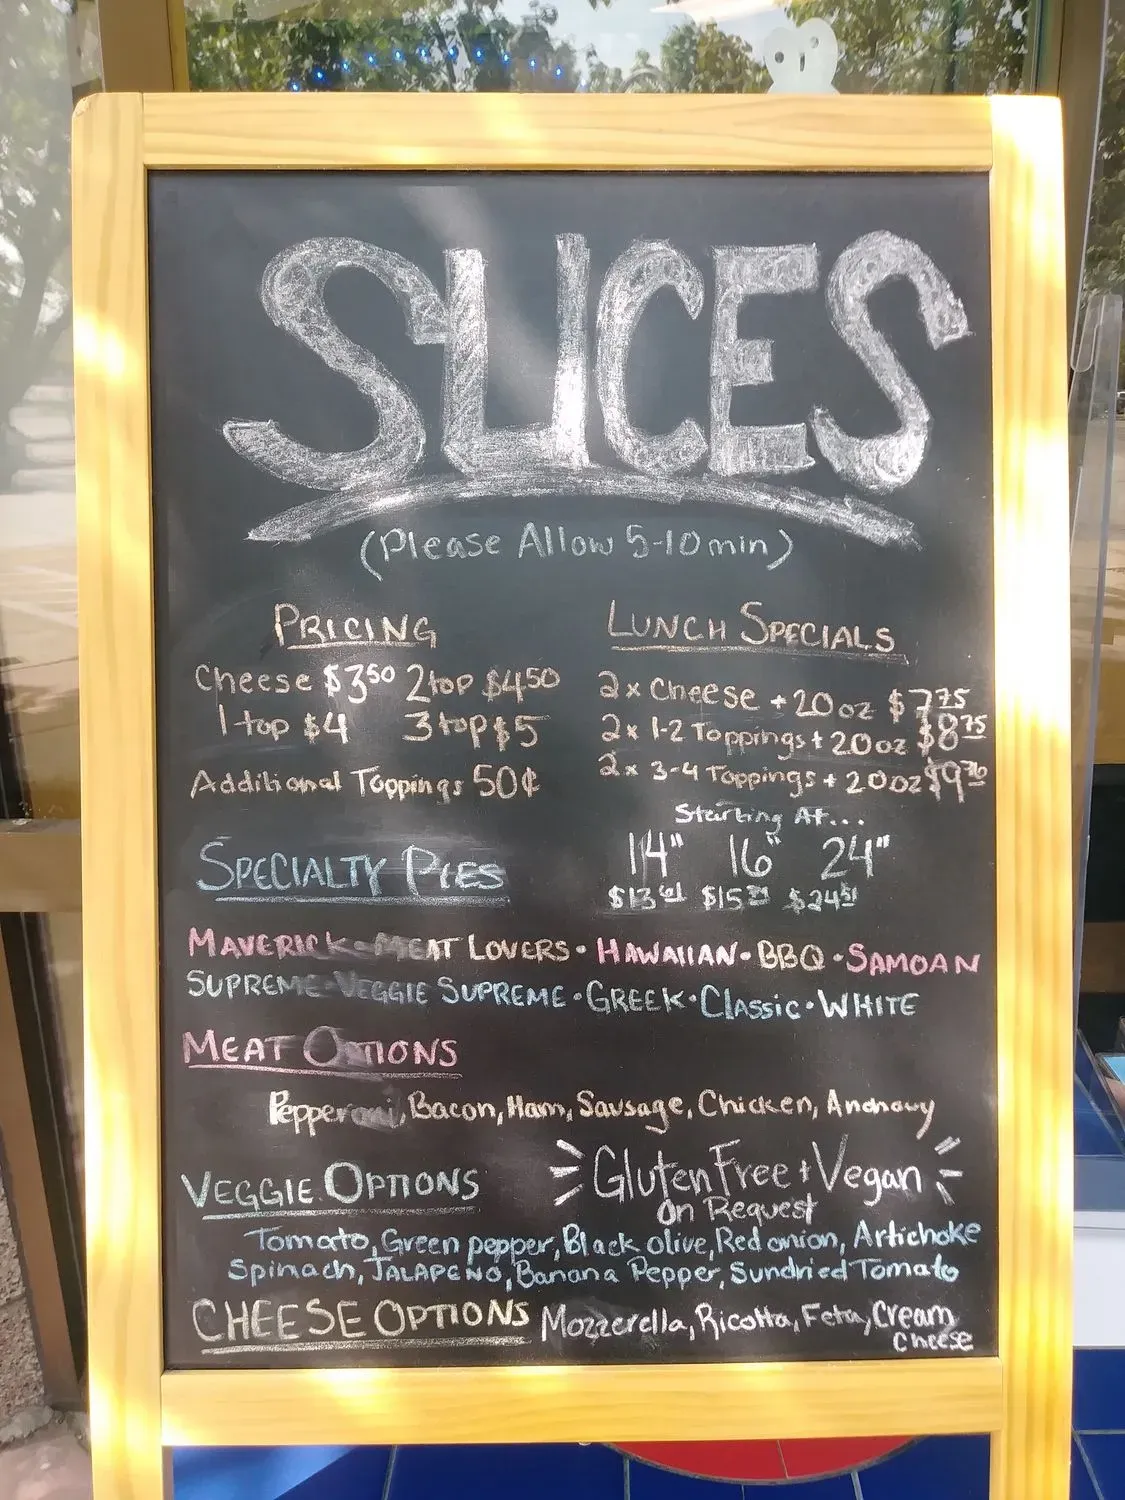 SLICES
(Please Allow 5-10 min)
PRICING
Cheese $3.50 2top $4.50
1 top $4 3 top $5
Additional Toppings 50¢
LUNCH SPECIALS
2x Cheese + 20 oz $7.75
2x 1-2 Toppings + 20 oz $8.75
2x 3-4 Toppings + 20 oz
Starting At...
14" 16" 24"
SPECIALTY PIES
MAVERICK • MEAT LOVERS • HAWAIIAN • BBQ • SAMOAN
SUPREME • VEGGIE SUPREME • GREEK • Classic • WHITE
MEAT OPTIONS
Pepperoni, Bacon, Ham, Sausage, Chicken,
Gluten Free + Vegan
On Request
VEGGIE OPTIONS
Tomato, Green pepper, Black olive, Red onion, Artichoke
Spinach, JALAPENO, Banana Pepper, Sundried Tomato
CHEESE OPTIONS Mozzerella, Ricotta, Feta, Cream
cheese